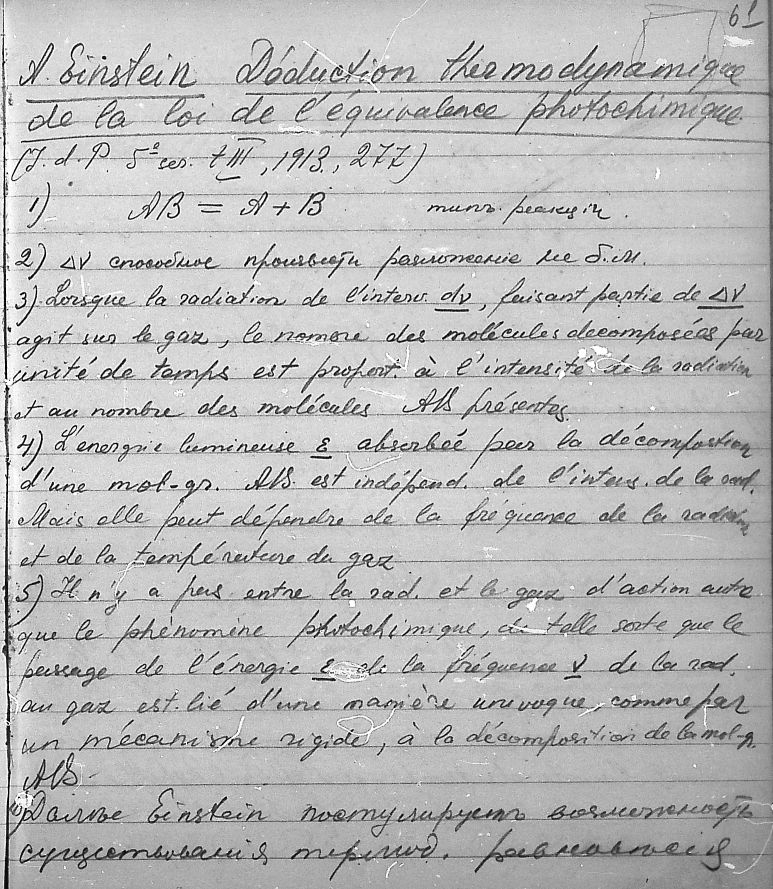 61
A. Einstein Déduction thermodynamique
de la loi de l'équivalence photochimique
(J. d. P. 5ᵉ ser. t III, 1913, 277)
1) AB = A + B типъ реакціи.
2) ΔV способное произвести разложеніе не б.м.
3) Lorsque la radiation de l'interv. dν, faisant partie de ΔV
agit sur le gaz, le nombre des molécules decomposées par
unité de temps est proport. à l'intensité de la radiation
et au nombre des molécules AB présentes
4) L'énergie lumineuse ε absorbée par la décomposition
d'une mol-gr. AB est indépend. de l'intens. de la rad.
Mais elle peut dépendre de la fréquence de la radiation
et de la température du gaz
5) Il n'y a pas entre la rad. et le gaz d'action autre
que le phénomène photochimique, de telle sorte que le
passage de l'énergie ε de la fréquence ν de la rad.
au gaz est lié d'une manière univoque, comme par
un mécanisme rigide, à la décomposition de la mol-gr.
AB.
Далѣе Einstein постулируетъ возможность
существованія термод. равновѣсія